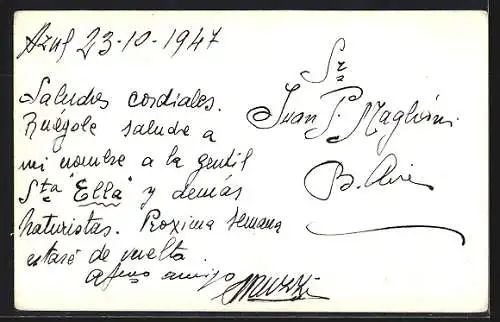 Azul 23-10-1947
Saludos cordiales.
Ruégole salude a
mi nombre a la gentil
Sta "Ella" y demás
naturistas. Proxima semana
estaré de vuelta.
Afmo amigo
Sr
Juan P.
B. Aires